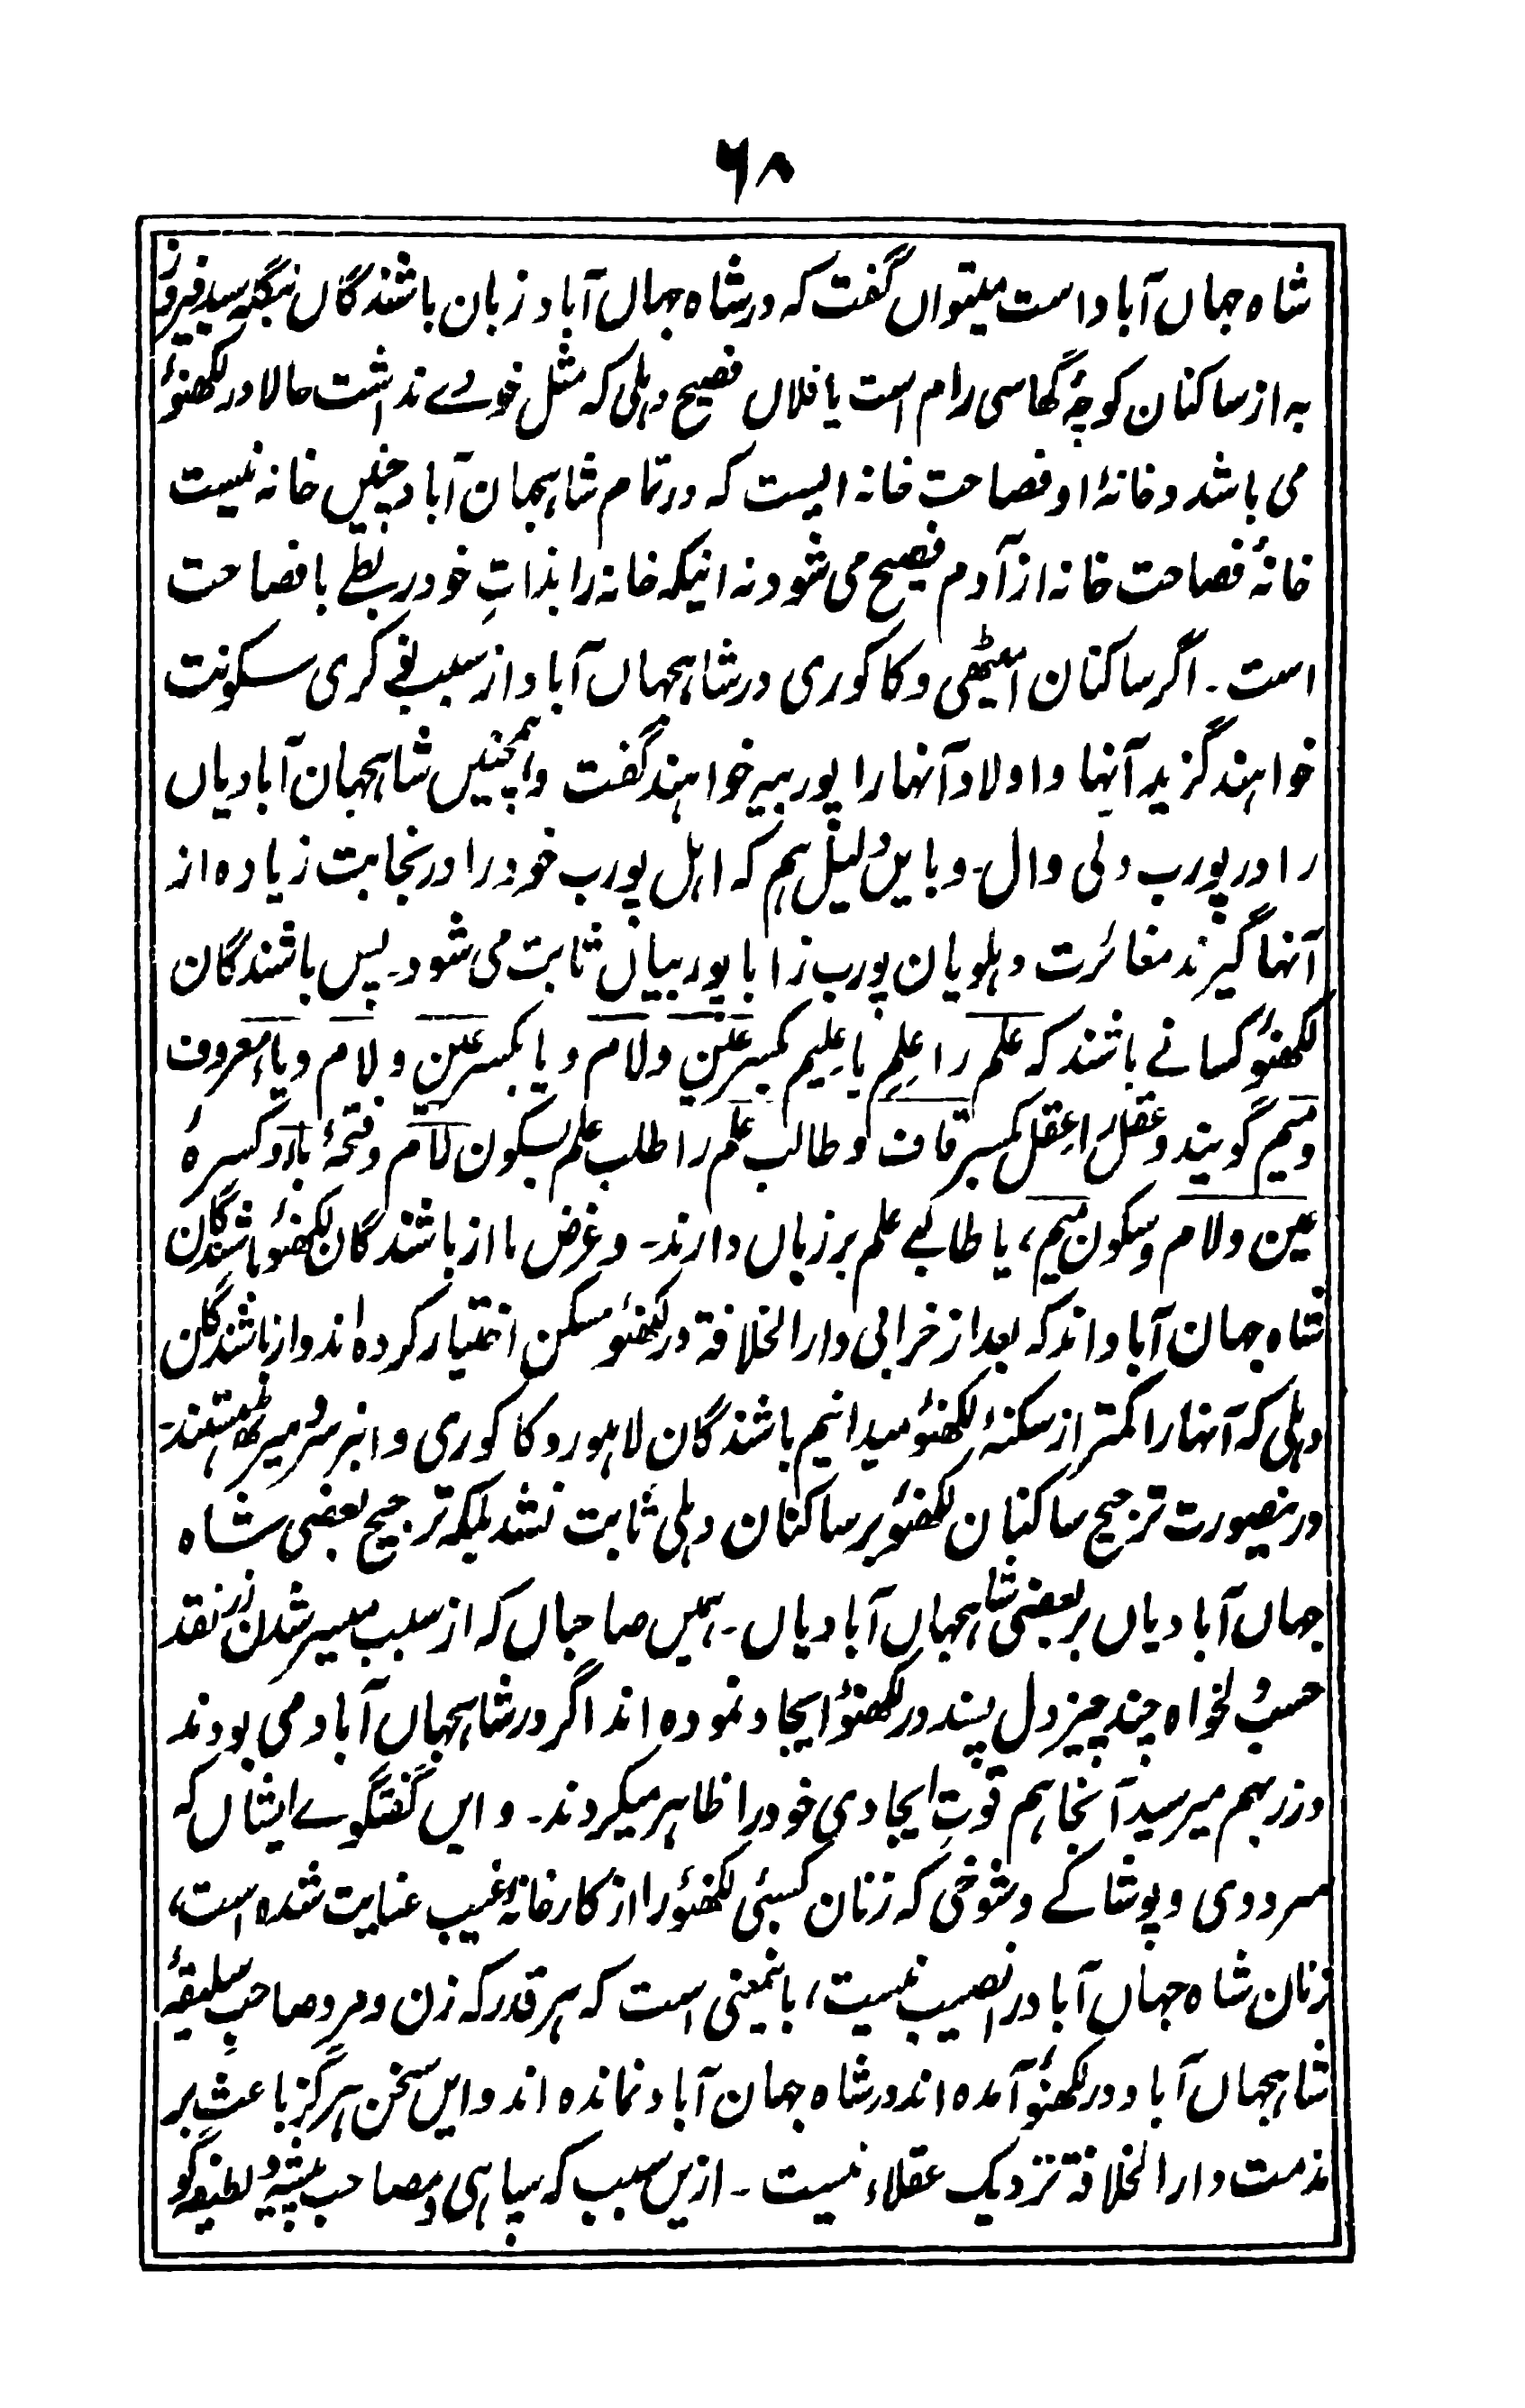 ۶۸
شاہ جہاں آباد است میتواں گفت کہ در شاہ جہاں آباد زبان باشندگاں بنگلہ سید فیروز
بہ از ساکنان کوچۂ گھاسی رام است یا فلاں فصیح دہلی کہ مثل خودے نداشت حالا در لکھنؤ
می باشد و خانۂ او فصاحت خانہ ایست کہ در تمام شاہجہان آباد چنیں خانہ نیست
خانۂ فصاحت خانہ از آدم فصیح می شود نہ اینکہ خانہ را بذاتِ خود ربطے با فصاحت
است۔ اگر ساکنان امیٹھی و کاکوری در شاہجہاں آباد از سبب نوکری سکونت
خواہند گزید آنہا و اولاد آنہا را پوربیہ خواہند گفت وہمچنیں شاہجہان آبادیاں
را در پورب دلی وال۔ و بایں دلیل ہم کہ اہل پورب خود را در نجابت زیادہ از
آنہا گیرند مغائرت دہلویان پورب زا با پوربیاں ثابت می شود۔ پس باشندگان
لکھنؤ کسانے باشند کہ علم را عِلِم یا عِلِیم بکسر عین ولام و یا بکسر عین و لام و یاء معروف
و میم گویند و عقل را عِقِل بکسر قاف و طالب علم را طلب علم بسکون لام و فتحۂ باء و کسرۂ
عین و لام و سکون میم، یا طالبے علم بر زباں دارند۔ و غرض ما از باشندگان لکھنؤ باشندگان
شاہ جہان آباد اند کہ بعد از خرابی دارالخلافۃ در لکھنؤ مسکن اختیار کردہ اند و از باشندگان
دہلی کہ آنہا را کمتر از سکنۂ لکھنؤ میدانیم باشندگان لاہور و کاکوری و انبر سرو میرٹھ ہستند۔
درینصورت ترجیح ساکنان لکھنؤ بر ساکنان دہلی ثابت نشد بلکہ ترجیح بعضی شاہ
جہاں آبادیاں بر بعضی شاہجہاں آبادیاں۔ ہمیں صاحباں کہ از سبب میسر شدن زر نقد
حسب دلخواہ چند چیز دل پسند در لکھنؤ ایجاد نمودہ اند اگر در شاہجہاں آباد می بودند
و زر بہم میرسید آنجا ہم قوتِ ایجادی خود را ظاہر میکردند۔ و ایں گفتگوے ایشاں کہ
سرودی و پوشاکے و شوخی کہ زنان کسبئی لکھنؤ را از کارخانۂ غیب عنایت شدہ است،
زنان شاہ جہاں آباد را نصیب نیست، باینمعنی است کہ ہر قدر کہ زن و مرد صاحبِ سلیقۂ
شاہجہاں آباد در لکھنؤ آمدہ اند در شاہ جہان آباد نماندہ اند و ایں سخن ہرگز باعث بر
مذمت دارالخلافۃ نزدیک عقلاء نیست۔ ازیں سبب کہ سپاہی و مصاحب پیشہ و لطیفہ گو